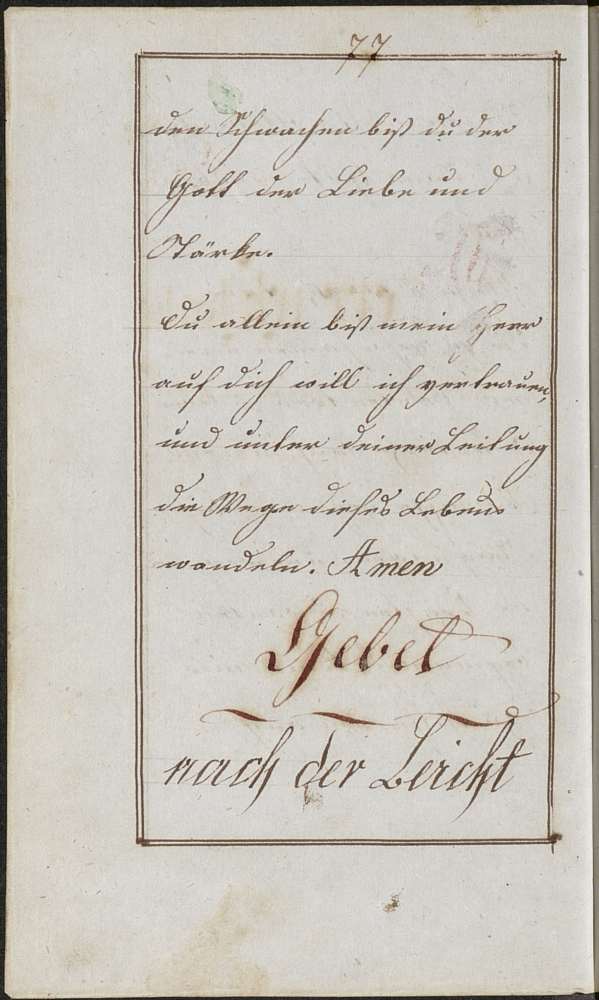 77
den Schwachen bist du der
Gott der Liebe und
Stärke.
Du allein bist mein Herr
auf dich will ich vertrauen,
und unter deiner Leitung
die Wege dieses Lebens
wandeln. Amen
Gebet
nach der Beicht